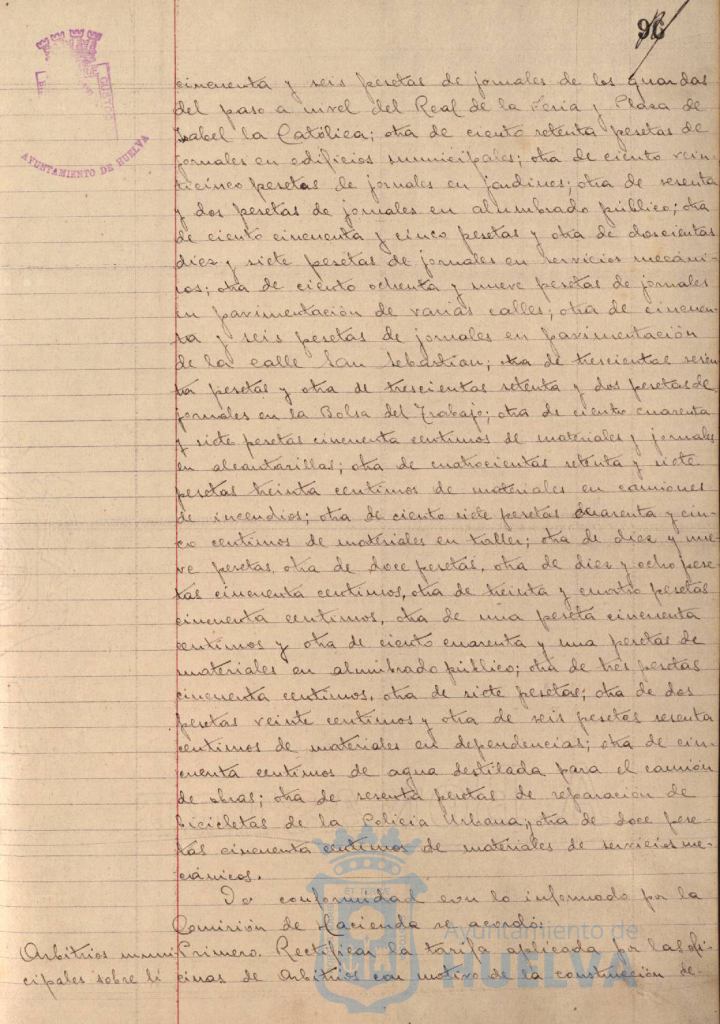 96
AYUNTAMIENTO DE HUELVA
cincuenta y seis pesetas de jornales de los guardas
del paso a nivel del Real de la Feria y Plaza de
Isabel la Católica; otra de ciento setenta pesetas de
jornales en edificios municipales; otra de ciento vein-
ticinco pesetas de jornales en jardines; otra de sesenta
y dos pesetas de jornales en alumbrado público; otra
de ciento cincuenta y cinco pesetas y otra de doscientas
diez y siete pesetas de jornales en servicios mecáni-
cos; otra de ciento ochenta y nueve pesetas de jornales
en pavimentación de varias calles; otra de cincuen-
ta y seis pesetas de jornales en pavimentación
de la calle San Sebastian; otra de trescientas sesen-
ta pesetas y otra de trescientas setenta y dos pesetas de
jornales en la Bolsa del Trabajo; otra de ciento cuarenta
y siete pesetas cincuenta centimos de materiales y jornales
en alcantarillas; otra de cuatrocientas setenta y siete
pesetas treinta centimos de materiales en camiones
de incendios; otra de ciento siete pesetas cuarenta y cin-
co centimos de materiales en taller; otra de diez y nue-
ve pesetas, otra de doce pesetas, otra de diez y ocho pese-
tas cincuenta centimos, otra de treinta y cuatro pesetas
cincuenta centimos, otra de una peseta cincuenta
centimos y otra de ciento cuarenta y una pesetas de
materiales en alumbrado público; otra de tres pesetas
cincuenta centimos, otra de siete pesetas; otra de dos
pesetas veinte centimos y otra de seis pesetas sesenta
centimos de materiales en dependencias; otra de cin-
cuenta centimos de agua destilada para el camión
de obras; otra de sesenta pesetas de reparación de
bicicletas de la Policia Urbana; otra de doce pese-
tas cincuenta centimos de materiales de servicios me-
cánicos.
De conformidad con lo informado por la
Comisión de Hacienda se acordó:
Arbitrios muni-
cipales sobre li
Primero. Rectificar la tarifa aplicada por las ofi-
cinas de Arbitrios con motivo de la construcción de-
Ayuntamiento de
HUELVA